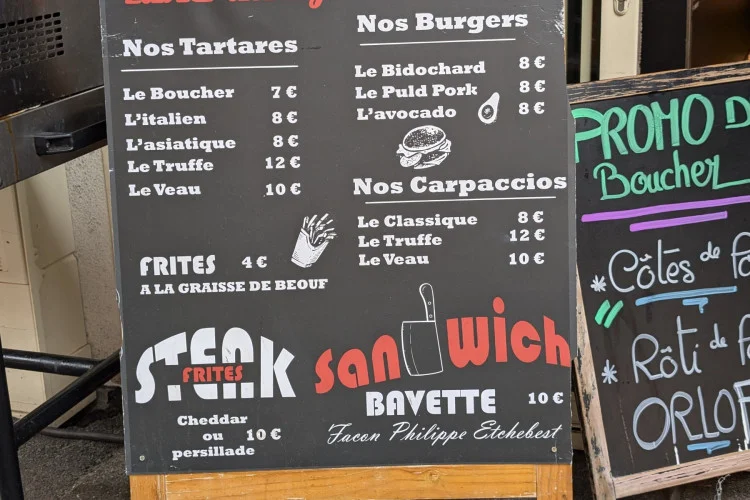 Nos Tartares
Le Boucher 7 €
L'italien 8 €
L'asiatique 8 €
Le Truffe 12 €
Le Veau 10 €
FRITES 4 €
A LA GRAISSE DE BEOUF
STEAK
FRITES
Cheddar
ou 10 €
persillade
Nos Burgers
Le Bidochard 8 €
Le Puld Pork 8 €
L'avocado 8 €
Nos Carpaccios
Le Classique 8 €
Le Truffe 12 €
Le Veau 10 €
sandwich
BAVETTE 10 €
Facon Philippe Etchebest
PROMO
Boucher
* Côtes de
* Rôti de
ORLOF